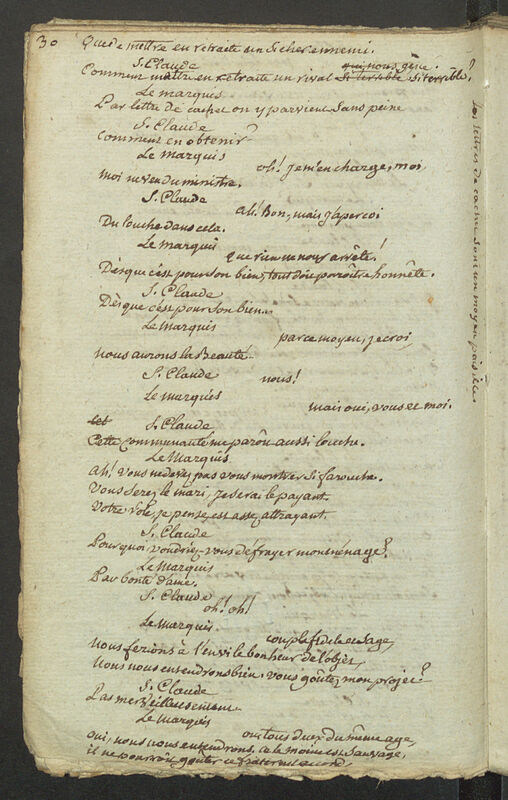 30
Que de mettre en retraite un si cher ennemi.
S. Claude
qui nous gêne.
Comment mettre en retraite un rival si terrible si terrible?
Le marquis
Par lettre de cachet on y parvient sans peine
S. Claude
Comment en obtenir?
Le Marquis
oh! je m'en charge, moi
moi neveu du ministre.
S. Claude
ah! Bon, mais j'apercoi
Du louche dans cela.
Le marquis
que rien ne nous arrête!
Dès que c'est pour son bien, tout doit paroître honnête.
S. Claude
Dès que c'est pour son bien..
Le Marquis
par ce moyen, je croi,
nous aurons la Beauté.
S. Claude
nous!
Le marquis
mais oui, vous et moi.
S. Claude
Cette communauté me paroît aussi louche.
Le Marquis
ah! vous ne devez pas vous montrer si farouche.
Vous serez le mari, je serai le payant.
Votre role, je pense, est assez attrayant.
S. Claude
Pourquoi voudriez-vous défrayer mon ménage?
Le Marquis
Par bonté d'ame.
S. Claude
oh! oh!
Le Marquis
nous ferions à l'envi le bonheur de l'objet,
nous nous entendrons bien, vous goûtez mon projet?
S. Claude
Pas merveilleusement.
Le Marquis
oui tous deux du même age,
oui, nous nous entendrons, ce le moine est sauvage,
il ne pourroit goûter ce fraternel accord
les lettres de cachet sont un moyen